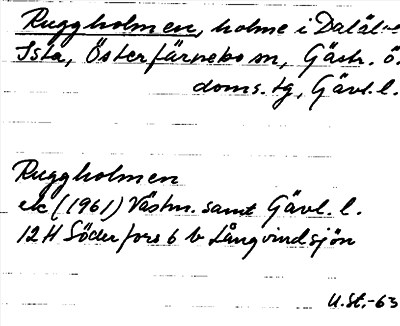 Ruggholmen, holme i Dalälve
Ista, Österfärnebo sn, Gästr. ö.
doms.tg, Gävl.l.
Ruggholmen
ek (1961) Västm. samt Gävl. l.
12H Söderfors 6 b Långvindsjön
U.St.-63